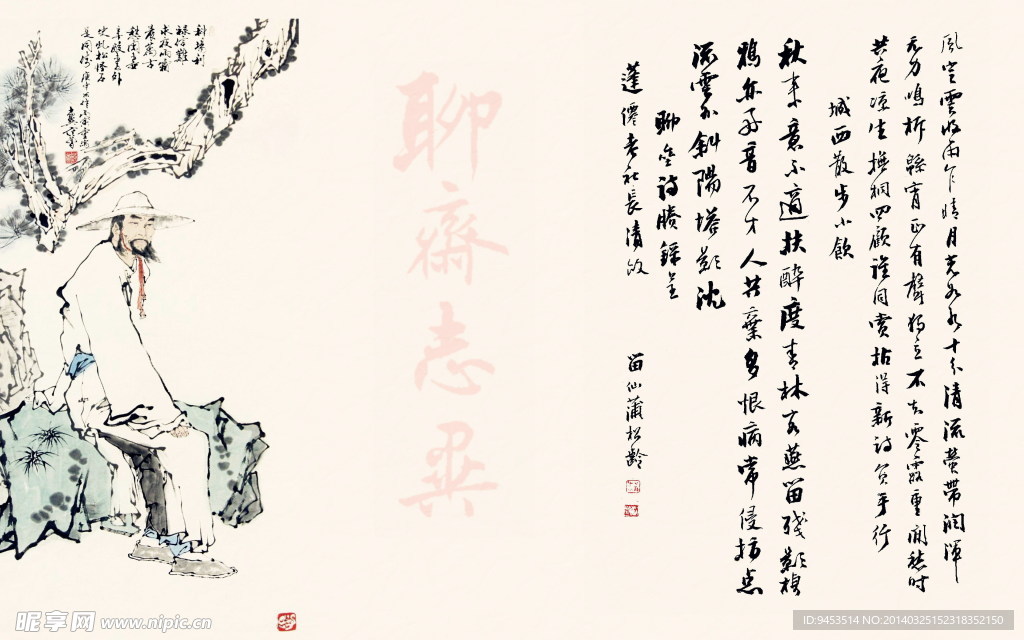 風定雲收雨乍晴月光如水十分清流螢帶潤渾
无力鳴柝縣宵正有聲獨立不知零露重閒愁時
共夜涼生撫桐四顧誰同賞拈得新詩負手行
城西散步小飲
秋來意不適扶醉度青林客燕留殘影棲
鴉亦好音不才人共棄多恨病常侵指點
流雲外斜陽塔影沈
聊齋詩賸錄呈
蓬僊老社長清政
留仙蒲松齡
聊齋志異
昵享网 www.nipic.cn
ID:9453514 NO:20140325152318352150